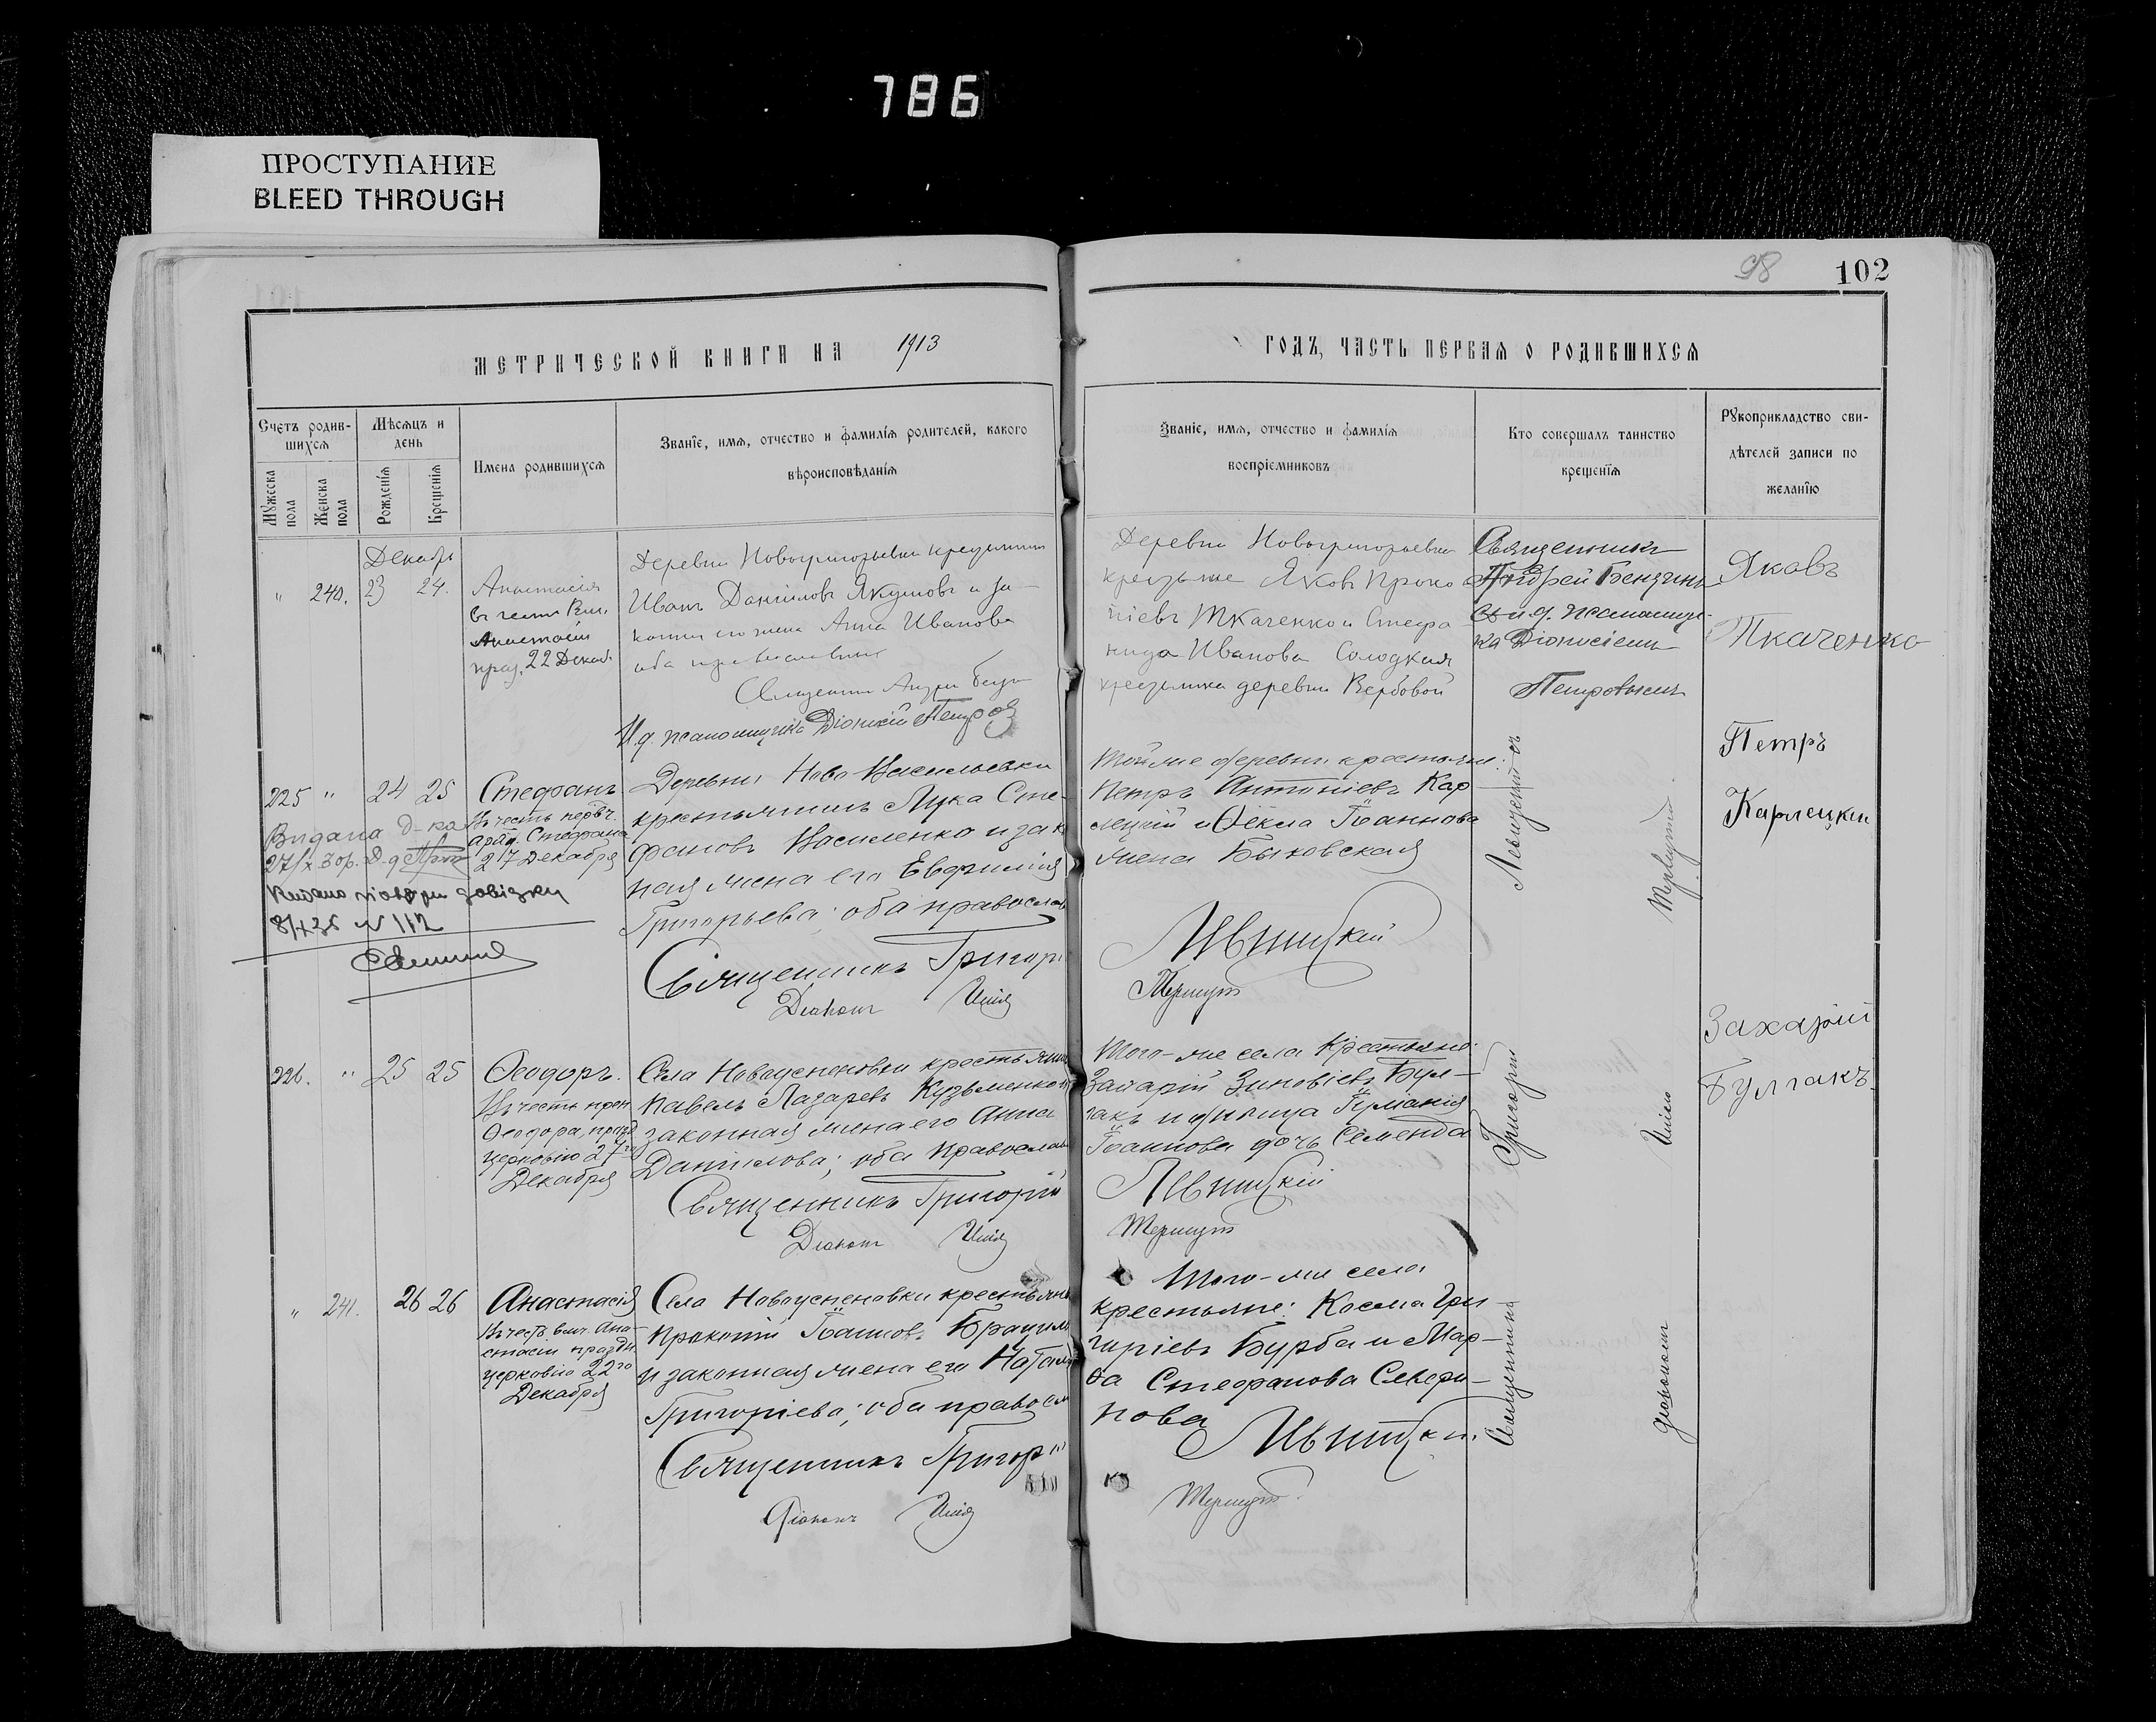 786
ПРОСТУПАНИЕ
BLEED THROUGH
98
102
МЕТРИЧЕСКОЙ КНИГИ НА 1913
ГОДЪ, ЧАСТЬ ПЕРВАЯ О РОДИВШИХСЯ
Счетъ родив-
шихся
Мѣсяцъ и
день
Мужеска
пола
Женска
пола
Рожденія
Крещенія
Имена родившихся
Званіе, имя, отчество и фамилія родителей, какого
вѣроисповѣданія
Званіе, имя, отчество и фамилія
воспріемниковъ
Кто совершалъ таинство
крещенія
Рукоприкладство сви-
дѣтелей записи по
желанію
Декабрь
" 240. 23 24.
Анастасія
въ честь Вмч.
Анастасіи
праз. 22 Декаб.
Деревни Новогригорьевки
Иванъ Даніиловъ Якуповъ и за
жена Анна Иванова
оба православные
Священникъ
И.д. псаломщика Діонисій Петров
Деревни Новогригорьевки
Яковъ Проко
піевъ Ткаченко и Стефа
нида Иванова Солодкая
деревни Вербовой
Священникъ
Андрей
съ и.д. псаломщи
ка Діонисіемъ
Петровымъ
Яковъ
Ткаченко
225 " 24 25
Стефанъ
Въ честь перв.
Стефана
27 Декабря
Видана
8/I 36 N 112
Деревни Ново Васильевки
крестьянинъ Лука Сте-
фановъ Василенко и зак
ная жена его Евфимія
Григорьева; оба православ
Священникъ Григорі
Діаконъ
Той же деревни крестьяне:
Петръ Антоніевъ Кар-
лецкій и Ѳекла Іоаннова
жена Быковская
Левицкій
Левицкій съ
Петръ
Карлецкій
226. " 25 25
Ѳеодоръ.
Въ честь преп.
Ѳеодора, празд
церковію 27го
Декабря
Села Новоуспеновки крестьянин
Павелъ Лазаревъ Кузьменко и
законная жена его Анна
Даніилова; оба православ
Священникъ Григорій
Діаконъ
Того-же села Крестьяне:
Захарій Зиновіевъ Бул-
гакъ и дѣвица Іуліанія
Іоаннова дочь Семенда
Левицкій
Григорій
Захарій
Булгакъ
" 241. 26 26
Анастасія
Въ честь вмч. Ана-
стасіи праздн.
церковію 22го
Декабря
Села Новоуспеновки крестьянин
Прокопій Іоанновъ
и законная жена его Натал
Григоріева; оба правосл
Священникъ Григорій
Діаконъ
Того-же села
крестьяне: Косма Гри-
горіевъ Бурба и Мар-
ѳа Стефанова Севери-
нова
Левицкій
Священникъ
діакономъ